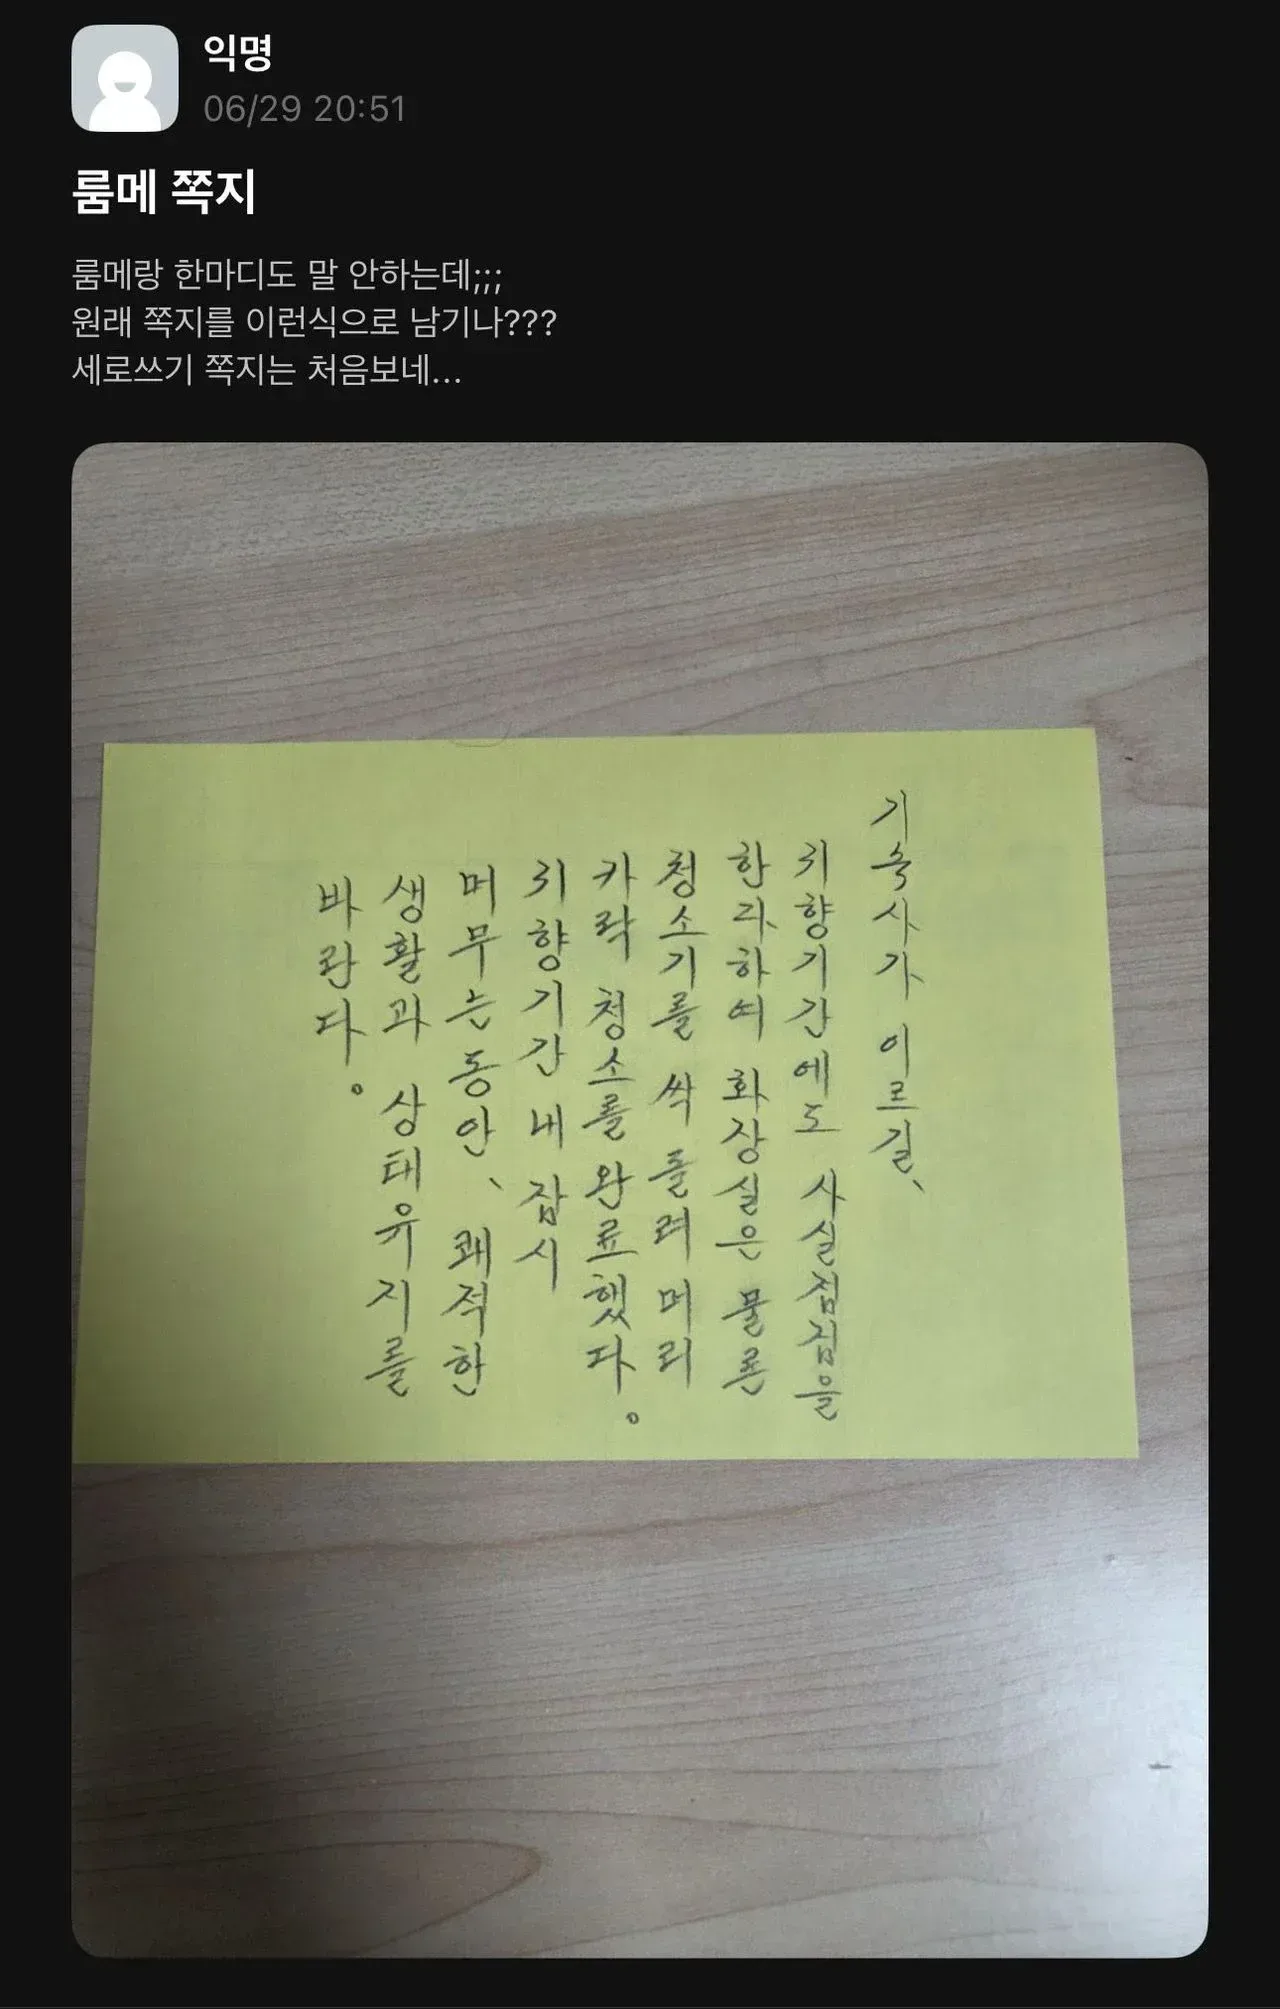 익명
06/29 20:51
룸메 쪽지
룸메랑 한마디도 말 안하는데;;;
원래 쪽지를 이런식으로 남기나???
세로쓰기 쪽지는 처음보네...
기숙사가 이르길、
귀향기간에도 사실점검을
한다하여 화장실은 물론
청소기를 싹 돌려 머리
카락 청소를 완료했다。
귀향기간 내 잠시
머무는동안、 쾌적한
생활과 상태유지를
바란다。